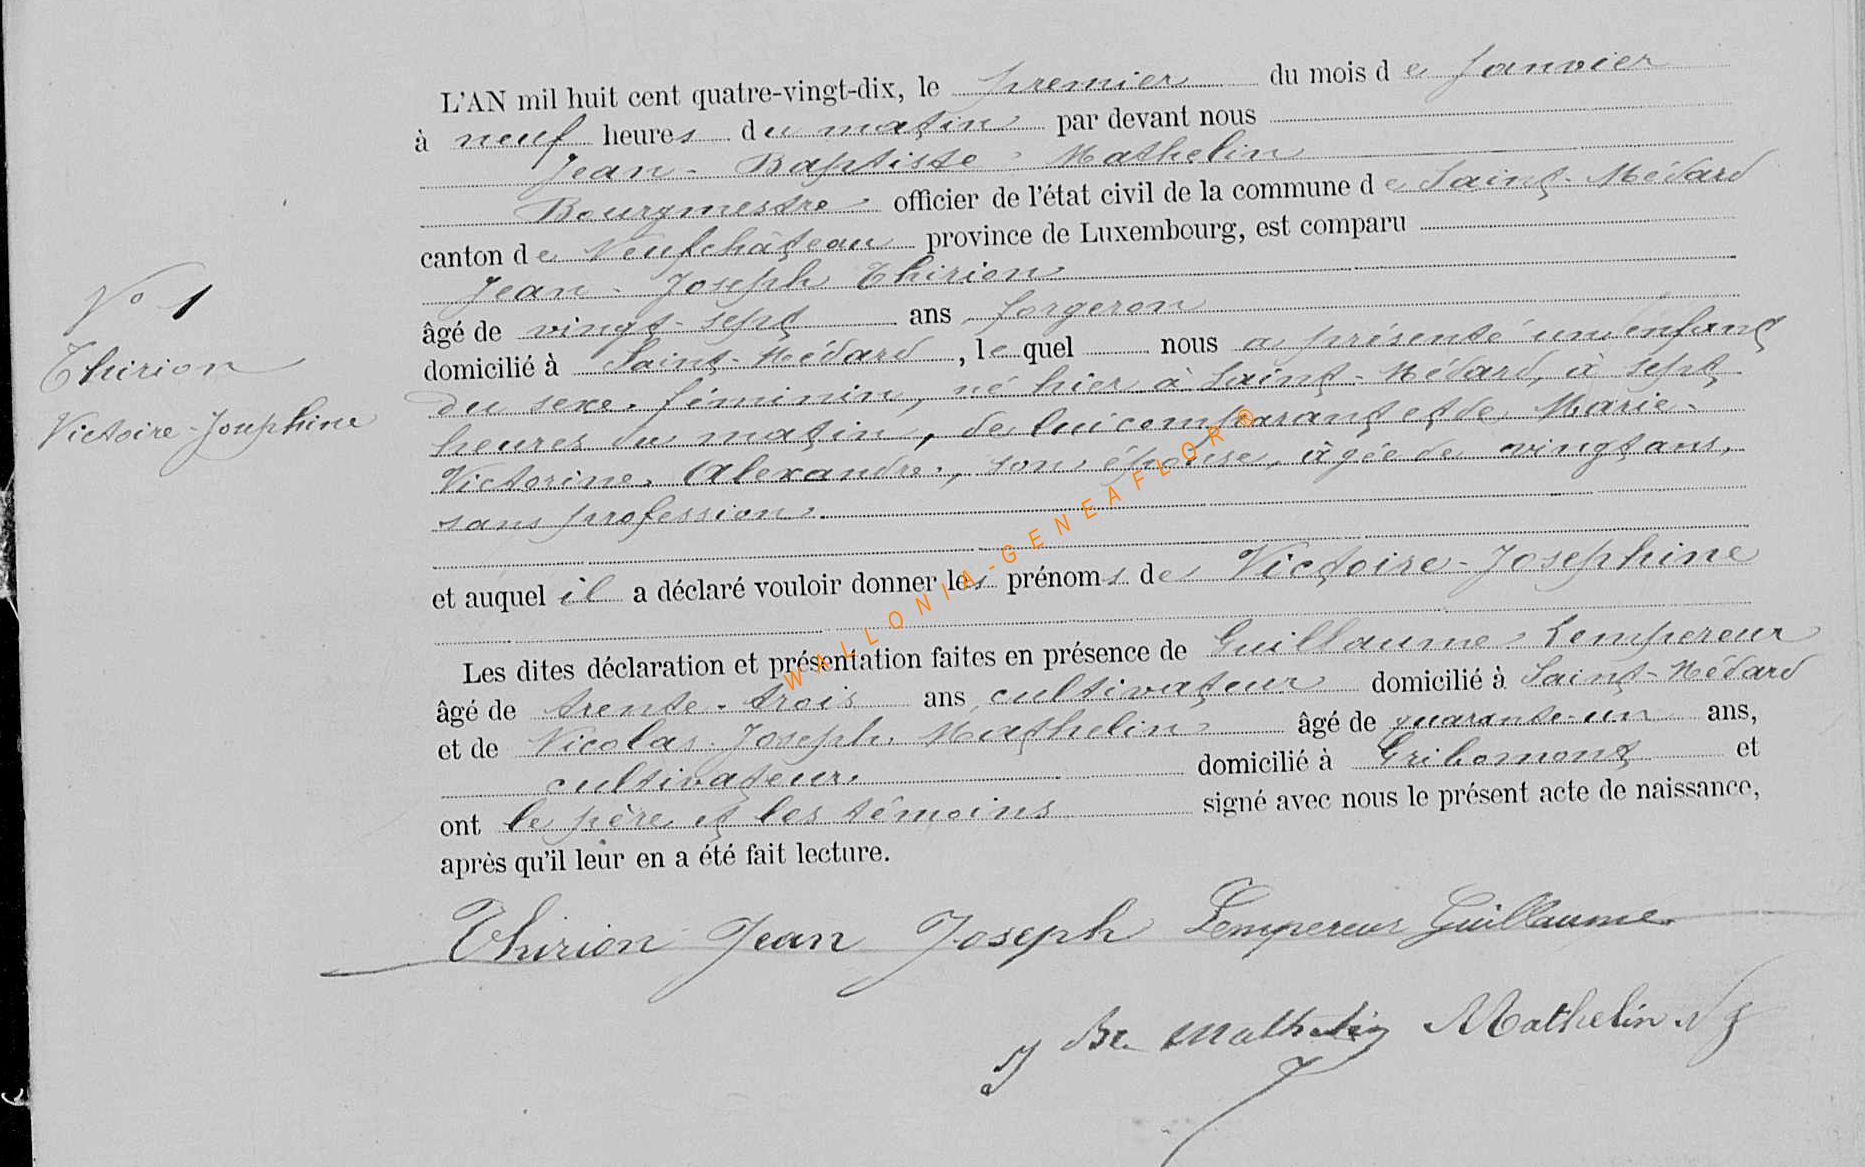 L'AN mil huit cent quatre-vingt-dix, le premier du mois de Janvier
à neuf heures du matin par devant nous
Jean-Baptiste Mathelin
Bourgmestre officier de l'état civil de la commune de Saint-Médard
canton de Neufchâteau province de Luxembourg, est comparu
Jean-Joseph Thirion
âgé de vingt-sept ans, forgeron
domicilié à Saint-Médard, lequel nous a présenté un enfant
du sexe féminin, né hier à Saint-Médard, à sept
heures du matin, de lui comparant et de Marie-
Victorine Alexandre, son épouse, âgée de vingt ans,
sans profession.
et auquel il a déclaré vouloir donner les prénoms de Victoire-Josephine
Les dites déclaration et présentation faites en présence de Guillaume Lempereur
âgé de trente-trois ans, cultivateur domicilié à Saint-Médard
et de Nicolas-Joseph Mathelin âgé de quarante-un ans,
cultivateur domicilié à Gribomont et
ont le père et les témoins signé avec nous le présent acte de naissance,
après qu'il leur en a été fait lecture.
Thirion Jean Joseph Lempereur Guillaume
J Bte Mathelin Mathelin N J
No 1
Thirion
Victoire-Josephine
WALLONIA-GENEAFLOR®